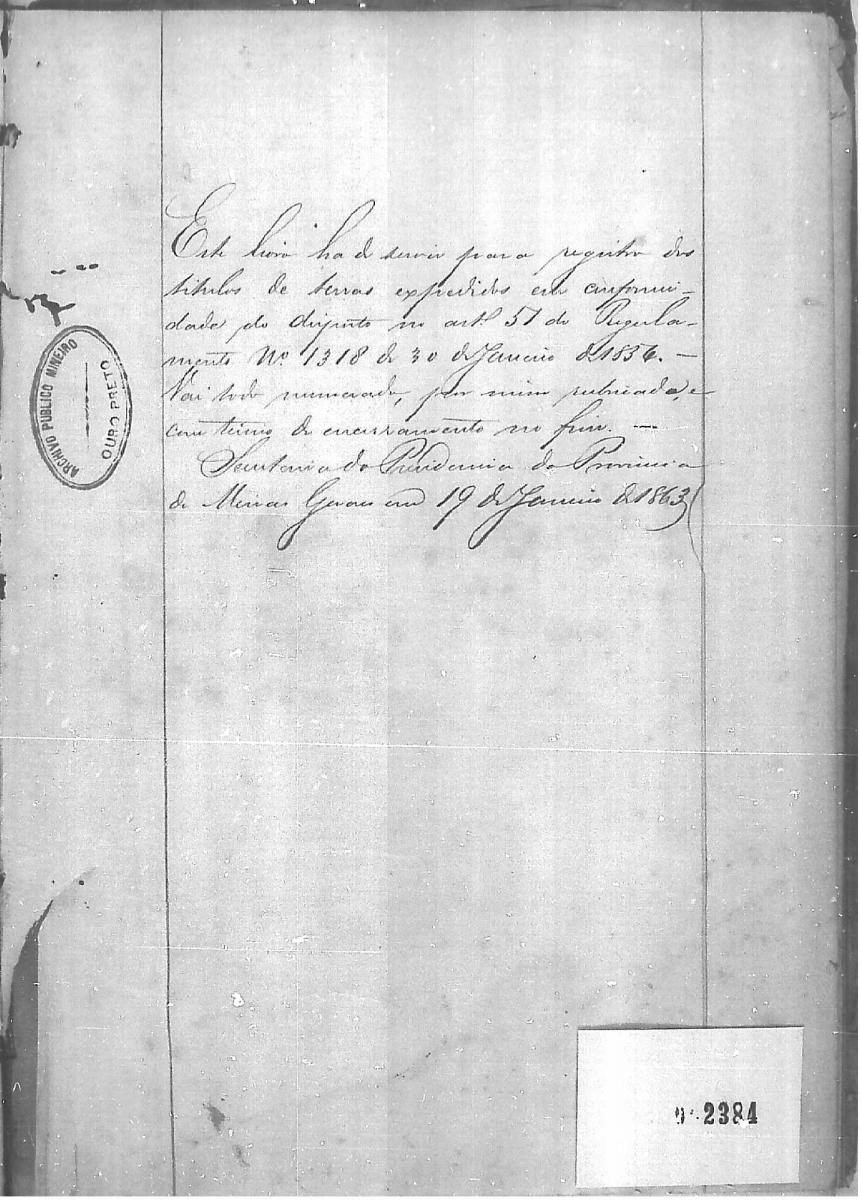 Este livro ha de servir para registro dos
titulos de terras expedidos em conformi-
dade do disposto no artº 51 do Regula-
mento Nº 1318 de 30 de Janeiro de 1854. —
Vai todo numerado, por mim rubricado, e
com termo de encerramento no fim. —
Secretaria da Presidencia da Provincia
de Minas Geraes em 19 de Janeiro de 1863
ARCHIVO PUBLICO MINEIRO
OURO PRETO
2384